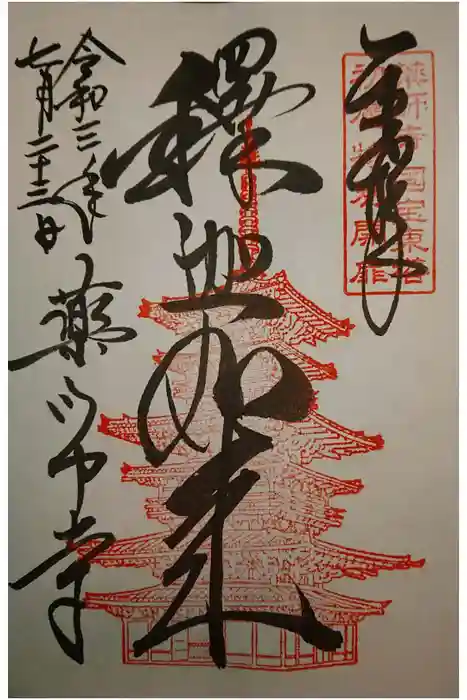 奉拝
薬師寺国宝東塔
釋迦如来
令和三年
七月二十三日
薬師寺